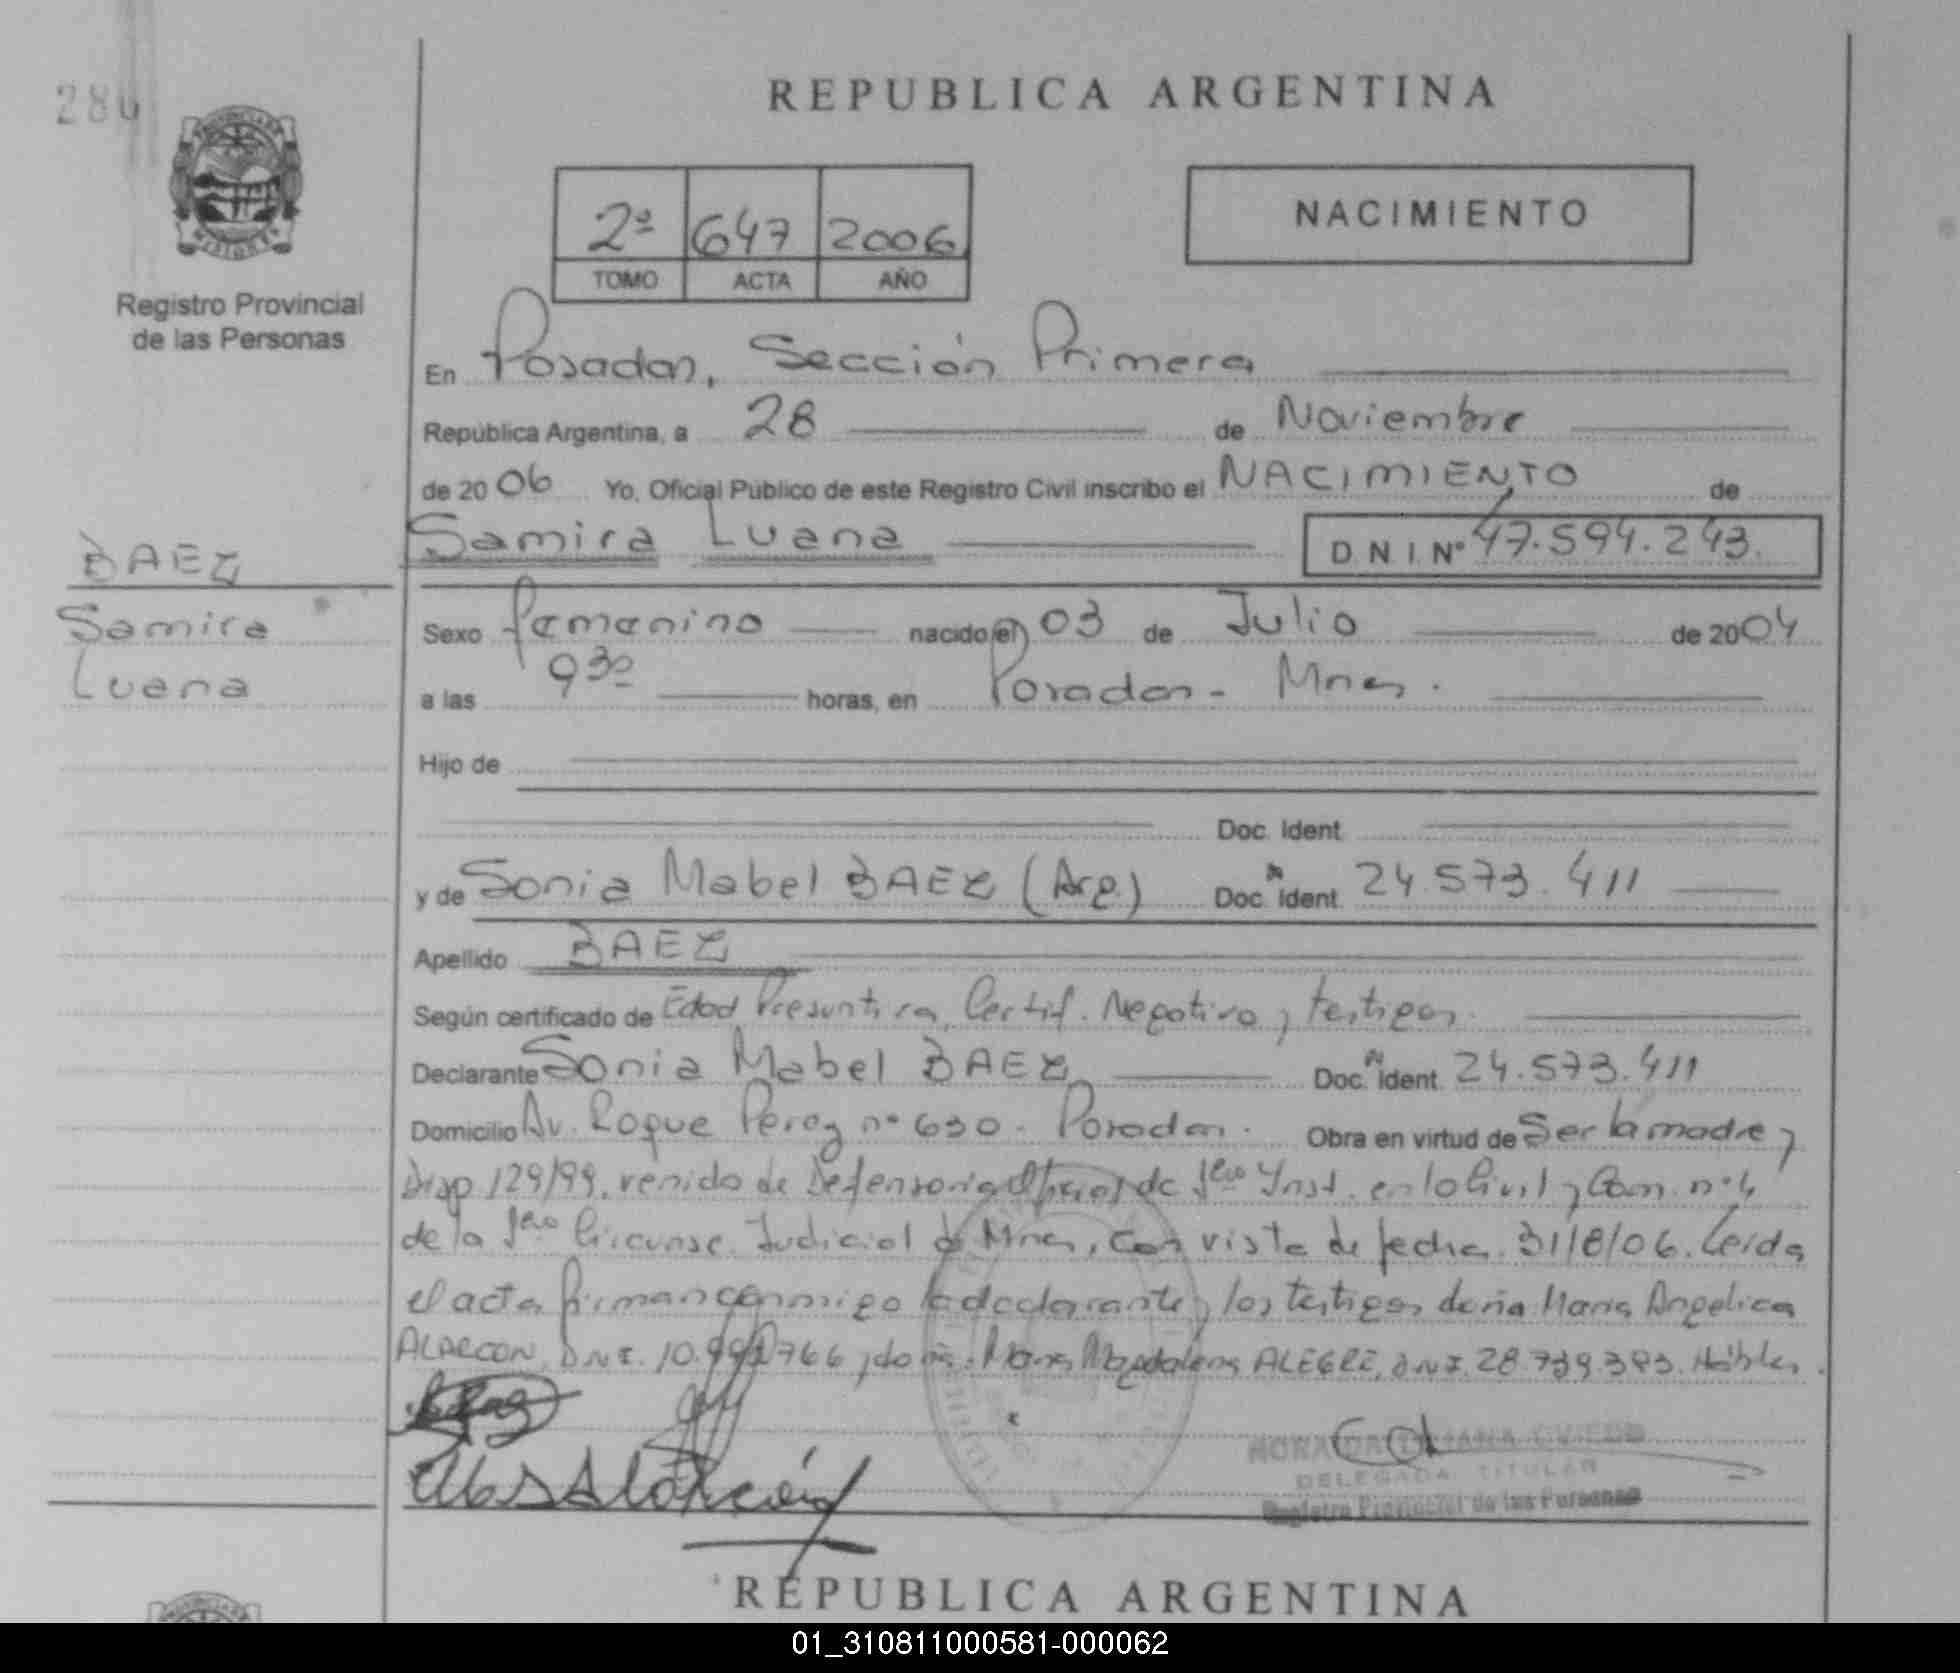 286
REPUBLICA ARGENTINA
2º 647 2006
TOMO ACTA AÑO
NACIMIENTO
Registro Provincial
de las Personas
En Posadas, Sección Primera
República Argentina, a 28 de Noviembre
de 2006 Yo, Oficial Público de este Registro Civil inscribo el NACIMIENTO de
Samira Luana D.N.I. Nº 47.594.243.
BAEZ
Samira
Luana
Sexo femenino nacido el 03 de Julio de 2004
a las 9 30 horas, en Posadas - Mnes.
Hijo de
Doc. Ident.
y de Sonia Mabel BAEZ (Arg.) Doc. Ident. 24.573.411
Apellido BAEZ
Según certificado de Edad Presuntiva, Certif. Negativo y testigos.
Declarante Sonia Mabel BAEZ Doc. Ident. 24.573.411
Domicilio Av. Roque Perez nº 630 - Posadas. Obra en virtud de Ser la madre y
Disp 129/99, venido de Defensoria Oficial de 1era Inst. en lo Civil y Com. nº 4
de la 1era Circunsc. Judicial de Mnes, con vista de fecha 31/8/06. Leida
el acta firman conmigo la declarante y los testigos doña Maria Angelica
ALARCON, DNI. 10.992766 y doña Maria Magdalena ALEGRE, DNI. 28.739.393. Hábiles.
DELEGADA TITULAR
Registro Provincial de las Personas
REPUBLICA ARGENTINA
01_310811000581-000062